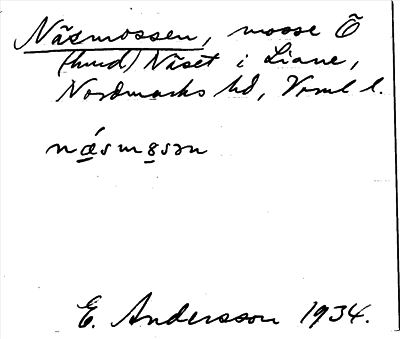 Näsmossen, mosse Ö
(hmd) Näset i Liane,
Nordmarks hd, Vrml l.
næ´smosən
E. Andersson 1934.